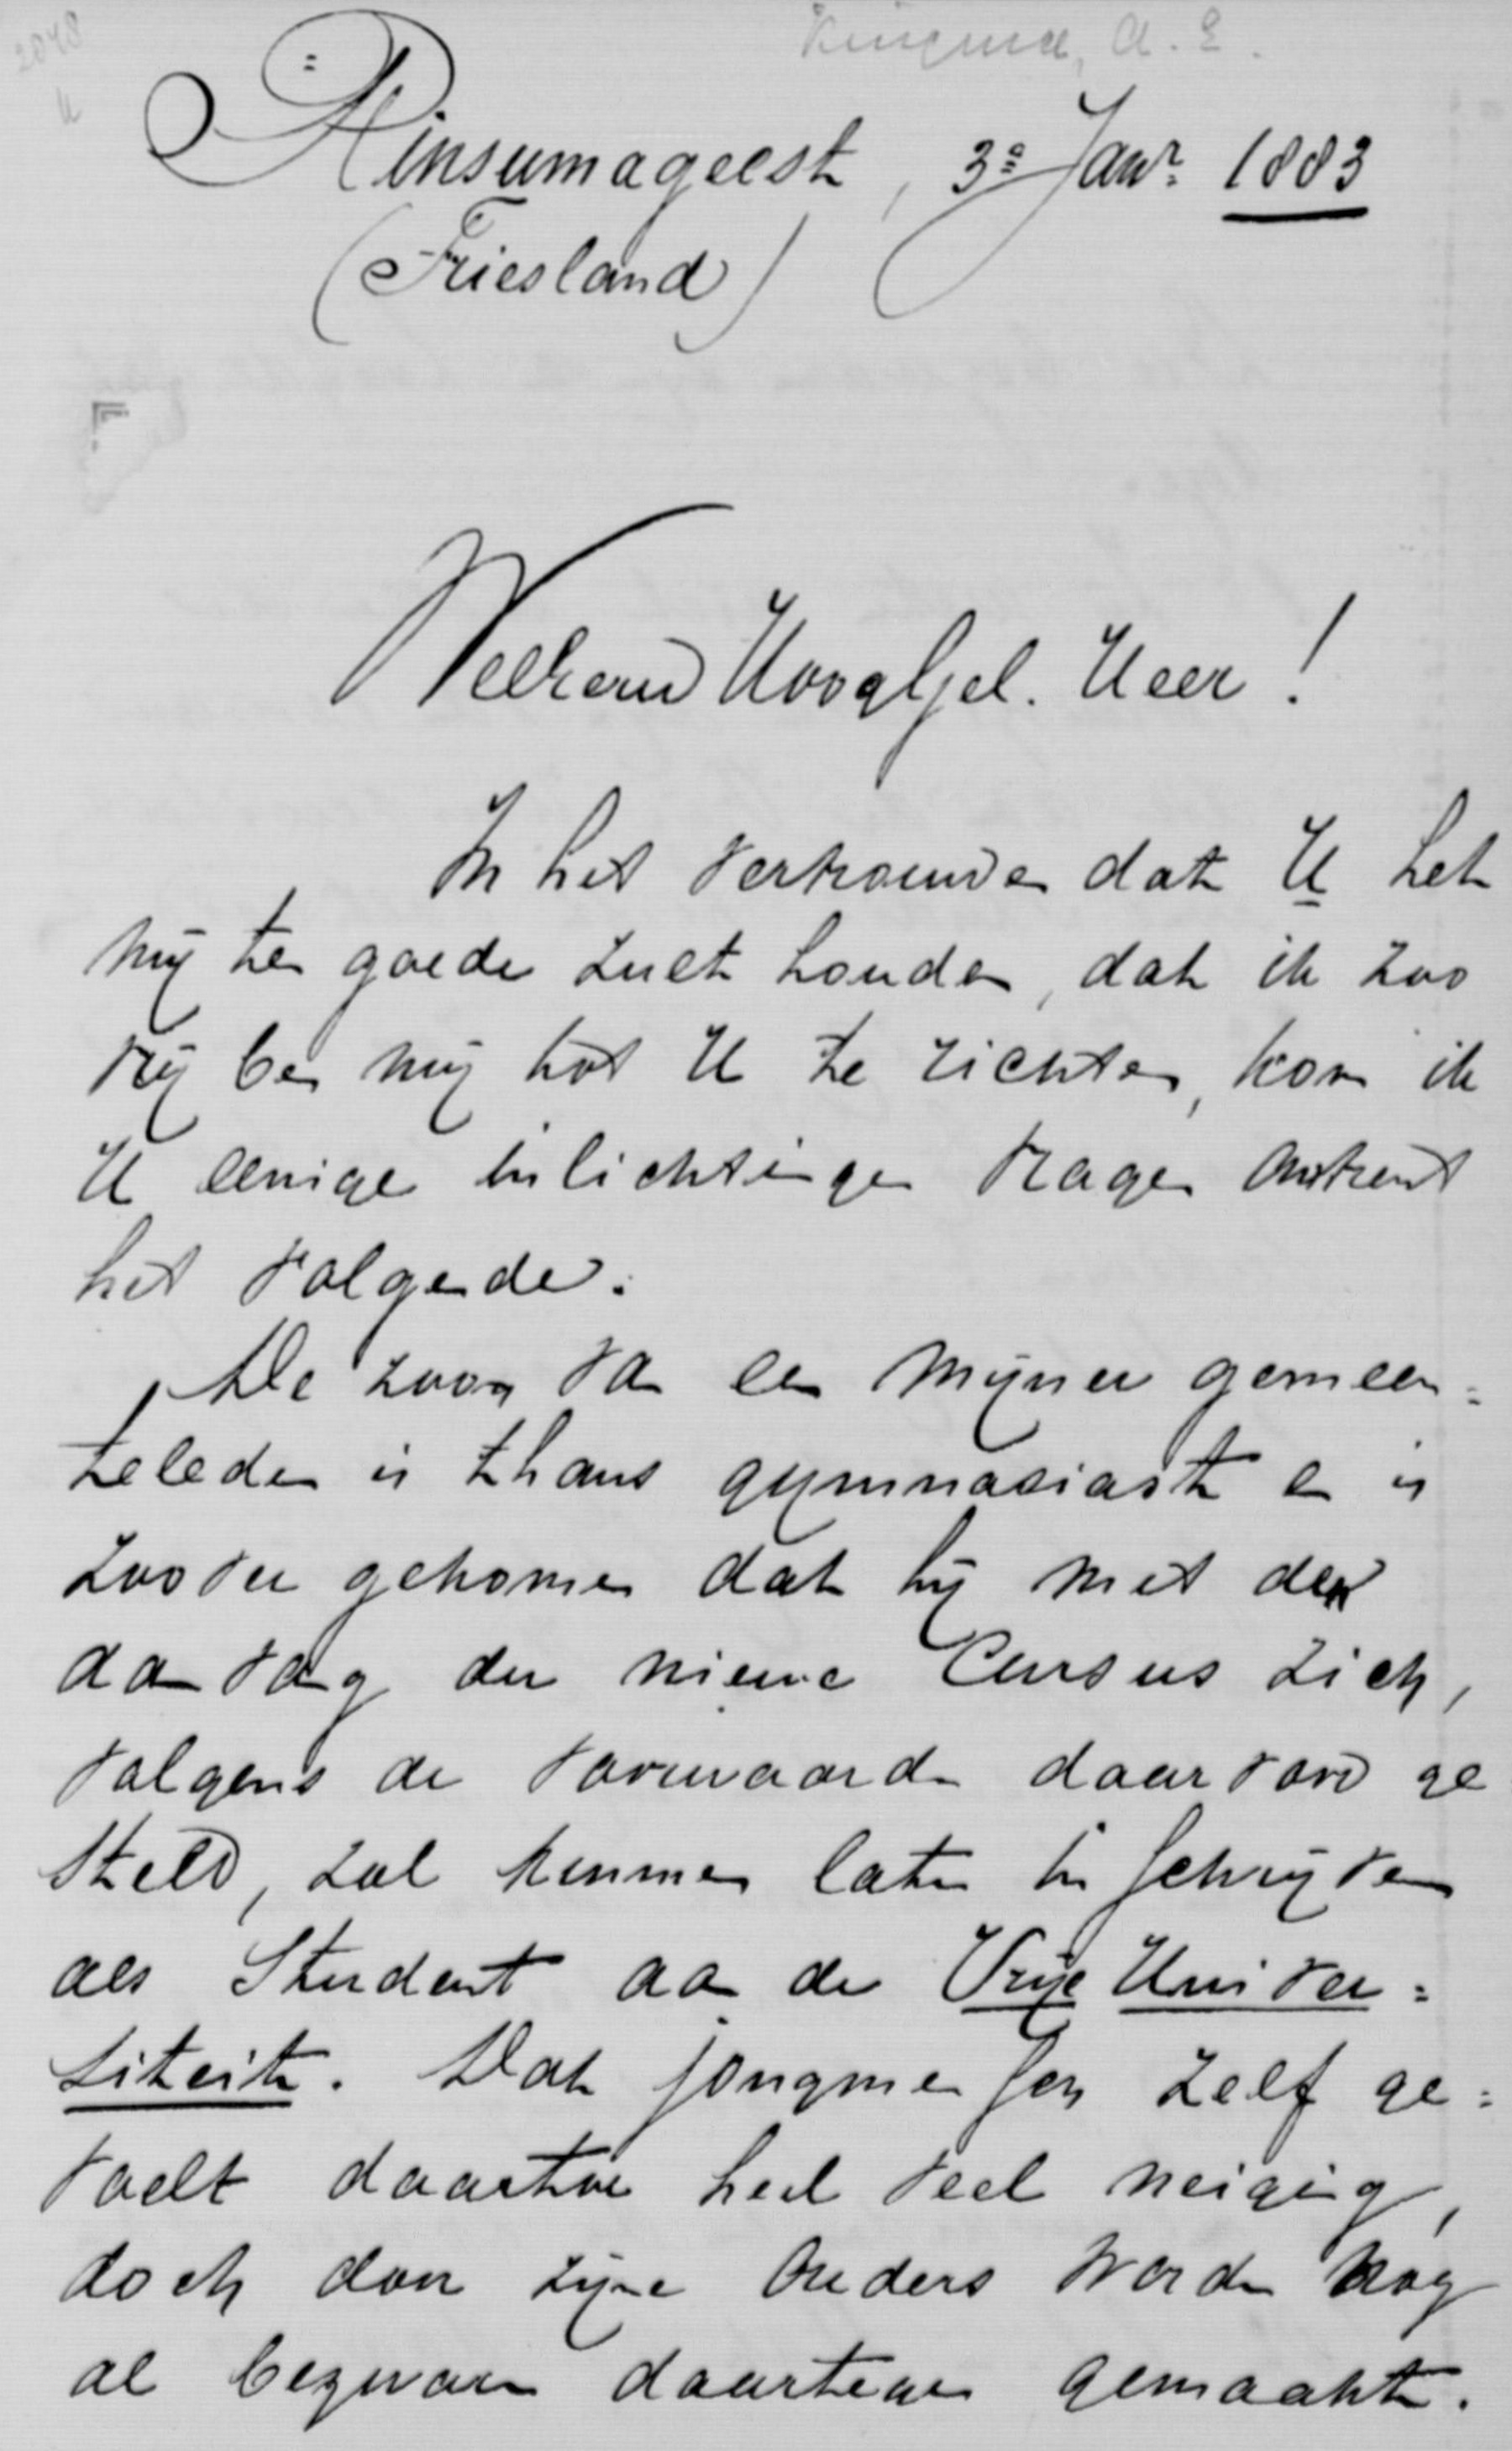 2048
Kingma, A. E.
Rinsumageest, 3e Janr. 1883
(Friesland)
Weleerw HoogGel. Heer!
In het vertrouwen dat U het
mij ten goede zult houden, dat ik zoo
vrij ben mij tot U te richten, kom ik
U eenige inlichtingen vragen omtrent
het volgende.
De zoon van een mijner gemeen=
teleden is thans gymnasiast en is
zoover gekomen dat hij met den
aanvang der nieuwe Cursus zich,
volgens de voorwaarden daarvoor ge
steld, zal kunnen laten inschrijven
als Student aan de Vrije Univer=
siteit. Dat jongmensch zelf ge=
voelt daartoe heel veel neiging,
doch door zijne Ouders worden nog
al bezwaren daartegen gemaakt.